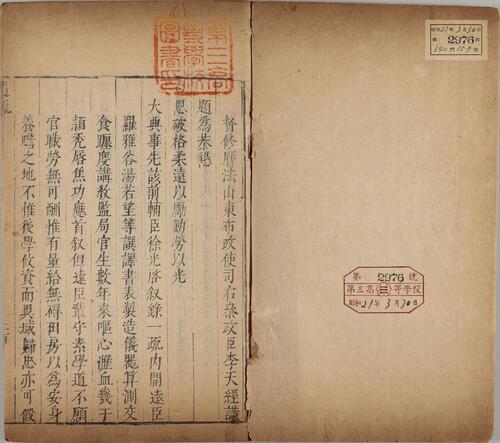 督修曆法山東布政使司右叅政臣李天經謹
題為恭懇
恩破格柔遠以勵勤勞以光
大典事先該前輔臣徐光啓叙錄一疏內開遠臣
羅雅谷湯若望等譔譯書表製造儀器算測交
食躔度講教監局官生數年來嘔心瀝血幾于
頴禿唇焦功應首叙但遠臣輩守素學道不願
官職勞無可酬惟有量給無碍田房以為安身
養贍之地不惟後學攸資而異域歸忠亦可假
第三高
等學校
圖書印
昭和21年3月30日
第 2976 號
第 2976 號
第三高三等學校
昭和21年3月30日